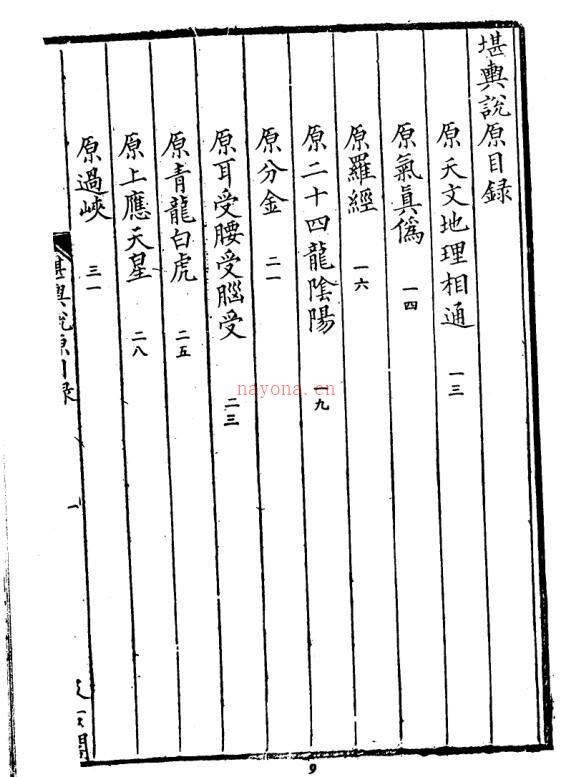 堪輿說原目録
原天文地理相通 一三
原氣真僞 一四
原羅經 一六
原二十四龍陰陽 一九
原分金 二一
原耳受腰受腦受 二三
原青龍白虎 二五
原上應天星 二八
原過峽 三一
堪輿說原目録
一
nayona.cn
9